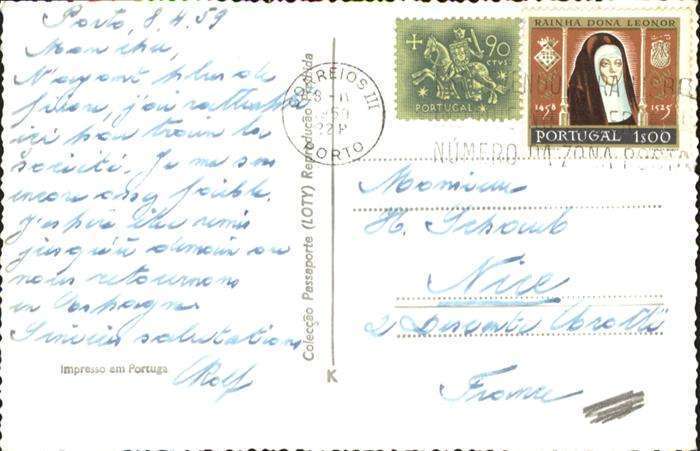 Porto, 8.4.59
Mon cher,
N'ayant plus de
fièvre, j'ai
ici par train la
société. Je me sens
encore assez faible.
J'espère être remis
jusqu'à demain où
nous retournons
en Espagne.
Sincères salutations
Rolf
Impresso em Portuga
Colecção Passaporte (LOTY) Reprodução
K
CORREIOS III
PORTO
90
CTVS
PORTUGAL
RAINHA DONA LEONOR
1458
1525
PORTUGAL 1$00
NÚMERO DA ZONA
Monsieur
H. Schaub
Nice
2 Descente Crotti
France